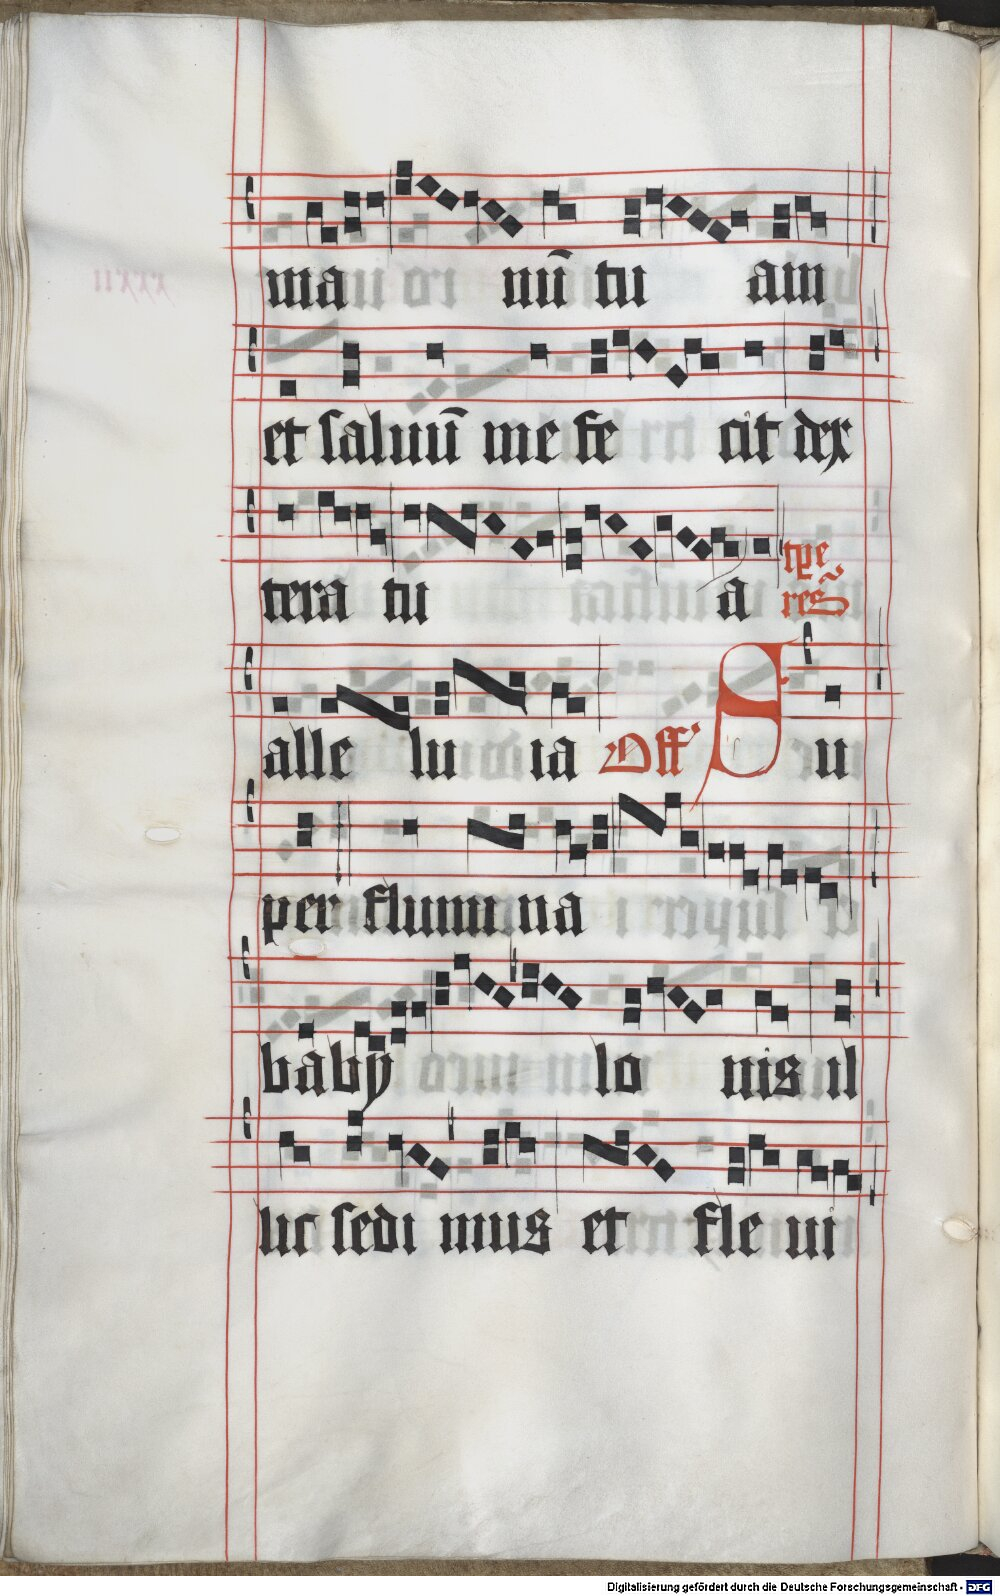 ma nū tu am
et saluū me fe cit dex
tera tu a tpe
reg̃
alle lu ia Off S u
per flumina
baby lo nis il
lic sedi mus et fle ui
Digitalisierung gefördert durch die Deutsche Forschungsgemeinschaft - DFG